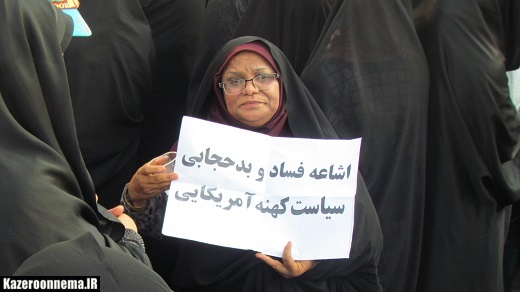 اشاعه فساد و بدحجابی
سیاست کهنه آمریکایی
Kazeroonnema.IR